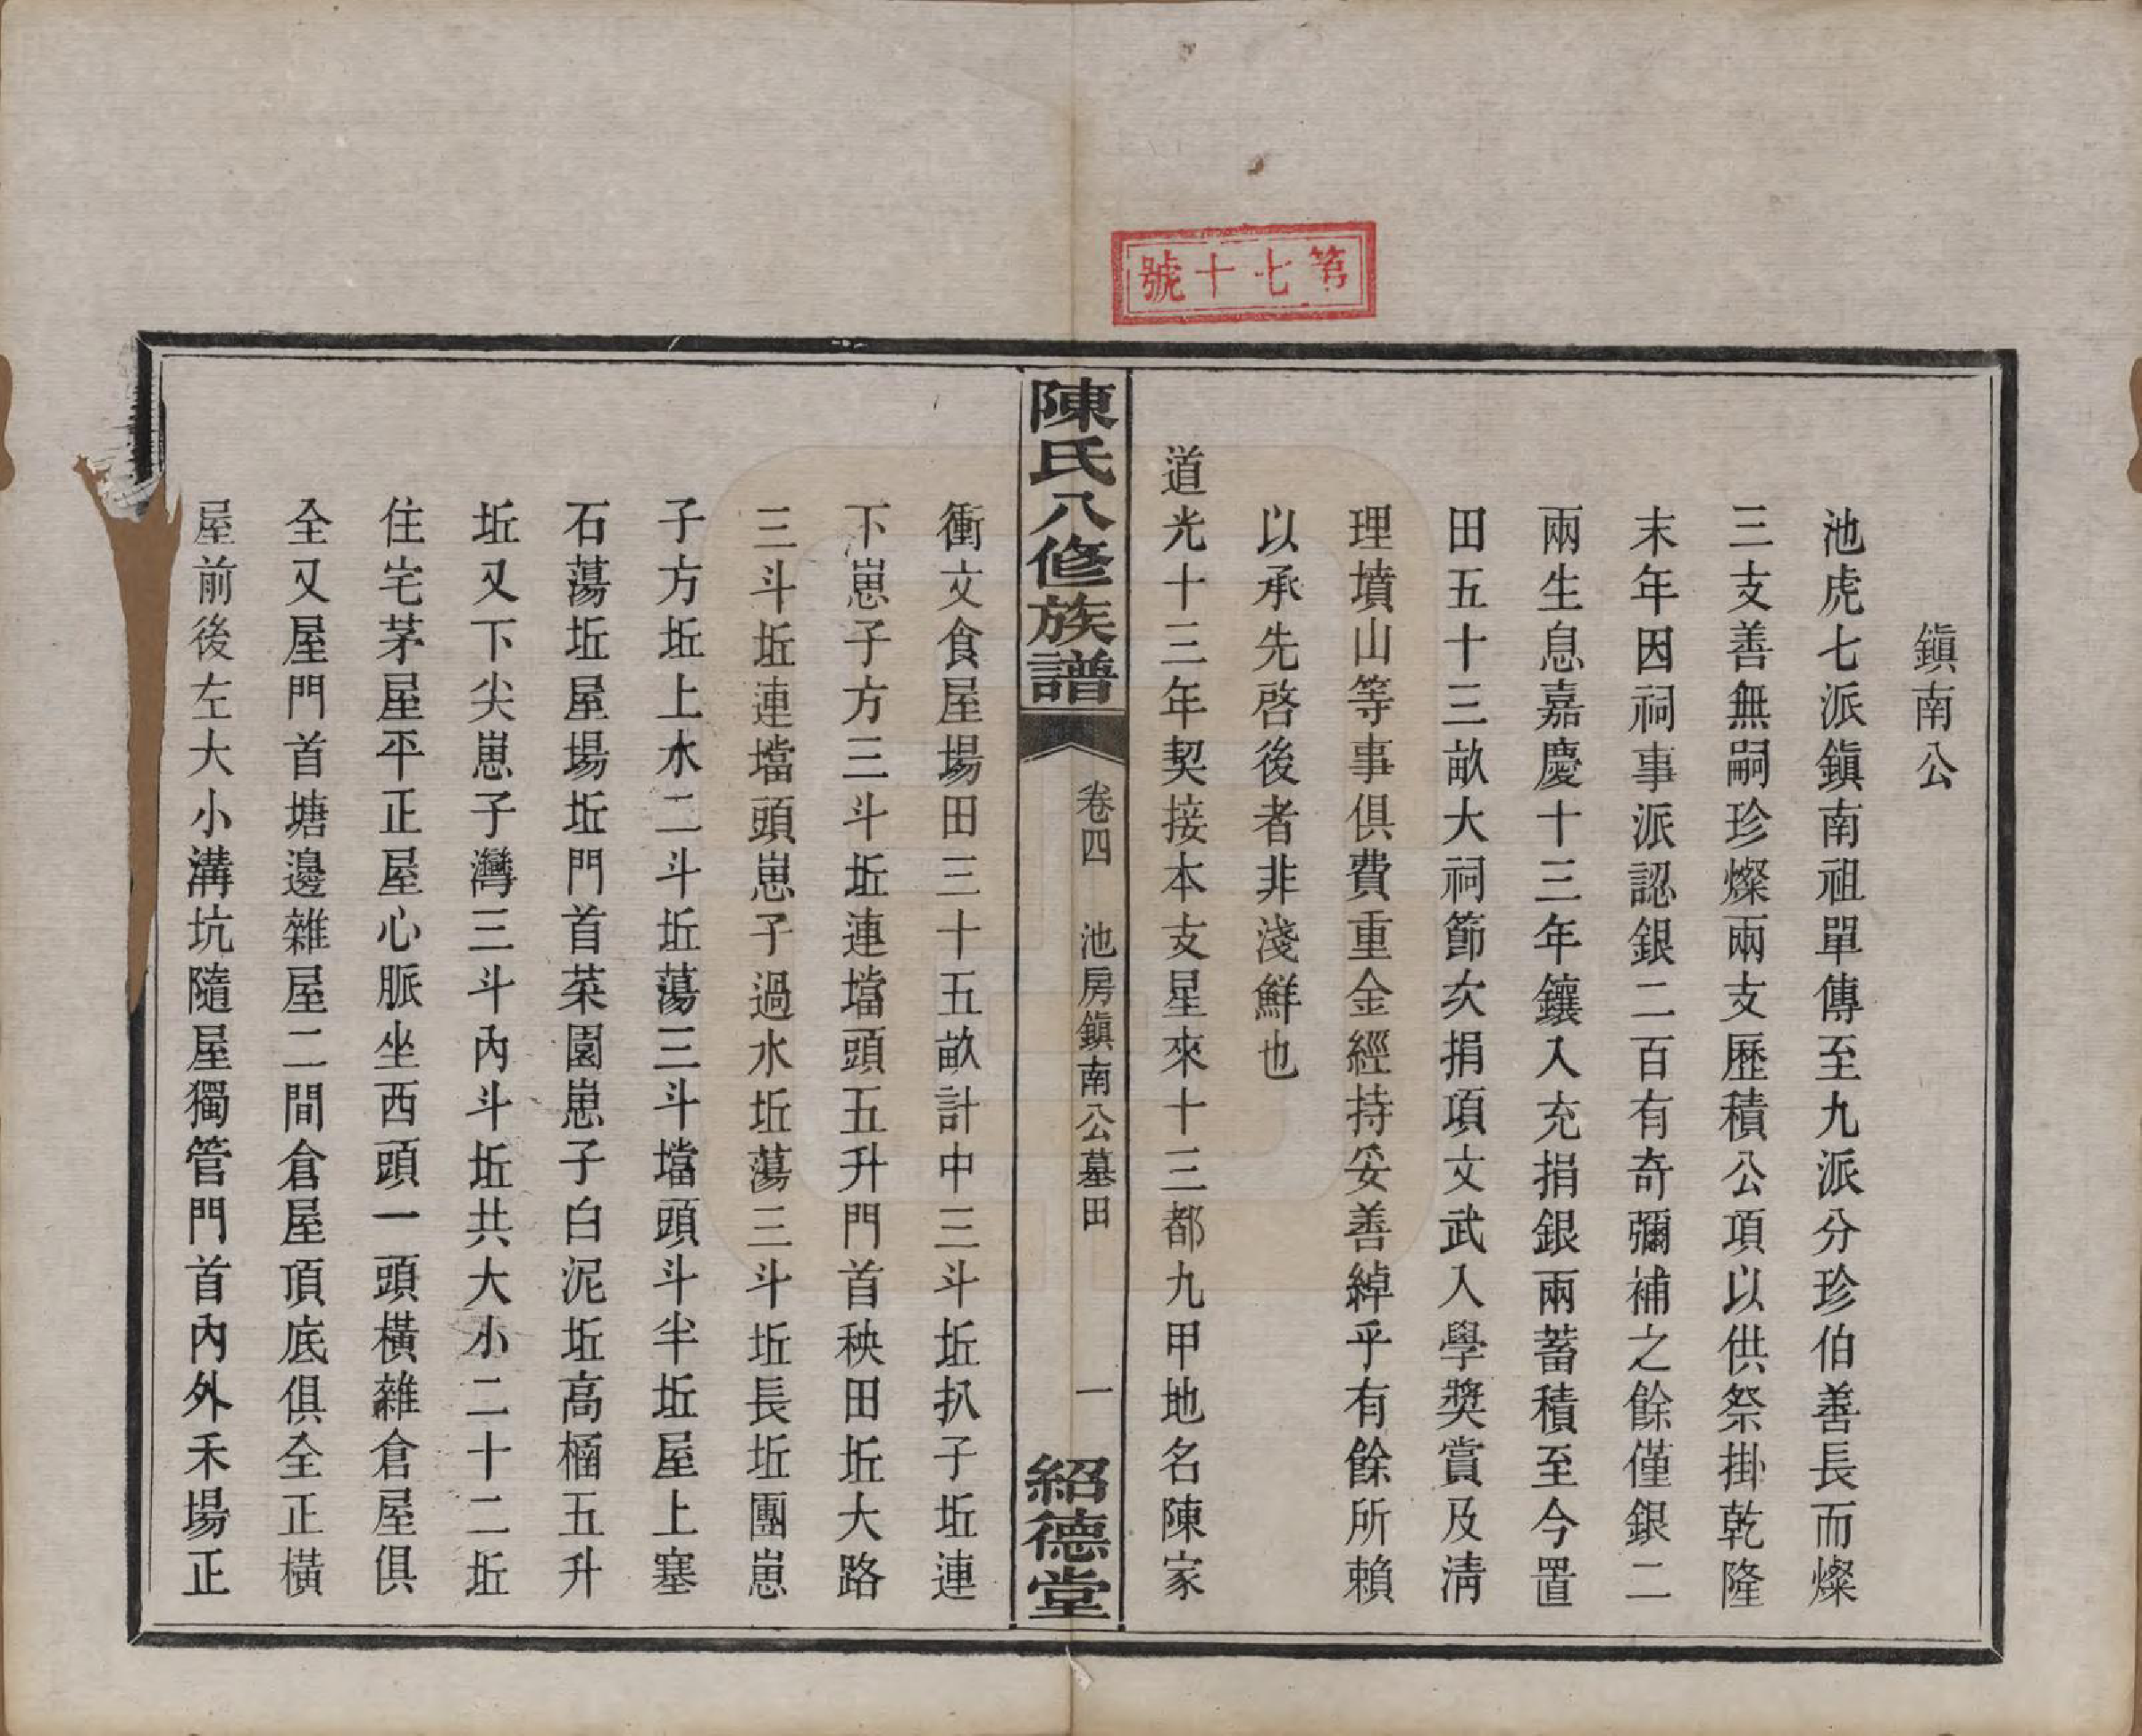 第七十號
鎭南公
池虎七派鎭南祖單傳至九派分珍伯善長而燦
三支善無嗣珍燦兩支歷積公項以供祭掛乾隆
末年因祠事派認銀二百有奇彌補之餘僅銀二
兩生息嘉慶十三年鑲入充捐銀兩蓄積至今置
田五十三畝大祠節次捐項文武入學獎賞及淸
理墳山等事俱費重金經持妥善綽乎有餘所賴
以承先啓後者非淺鮮也
道光十三年契接本支星來十三都九甲地名陳家
陳氏八修族譜
卷四
池房鎭南公墓田
一
紹德堂
衝文食屋場田三十五畝計中三斗坵扒子坵連
下崽子方三斗坵連壋頭五升門首秧田坵大路
三斗坵連壋頭崽子過水坵蕩三斗坵長坵團崽
子方坵上水二斗坵蕩三斗壋頭斗半坵屋上塞
石蕩坵屋場坵門首菜園崽子白泥坵高桶五升
坵又下尖崽子灣三斗內斗坵共大小二十二坵
住宅茅屋平正屋心脈坐西頭一頭橫雜倉屋俱
全又屋門首塘邊雜屋二間倉屋頂底俱全正橫
屋前後左大小溝坑隨屋獨管門首內外禾場正